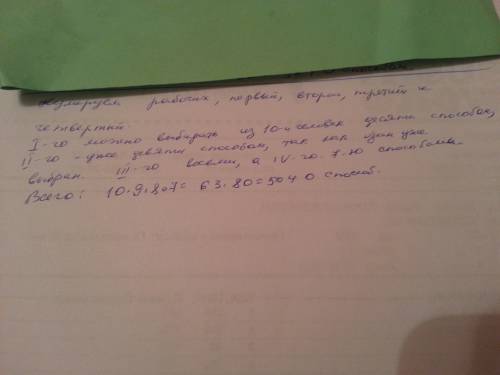 Нумеруем рабочих, первый, второй, третий и
четвертый.
I-го можно выбирать из 10-и человек десяти способом,
II-го - уже девяти способом, так как один уже
выбран. III-го восьми, а IV-го 7-ю способами.
Всего: 10·9·8·7= 63·80=5040 способ.